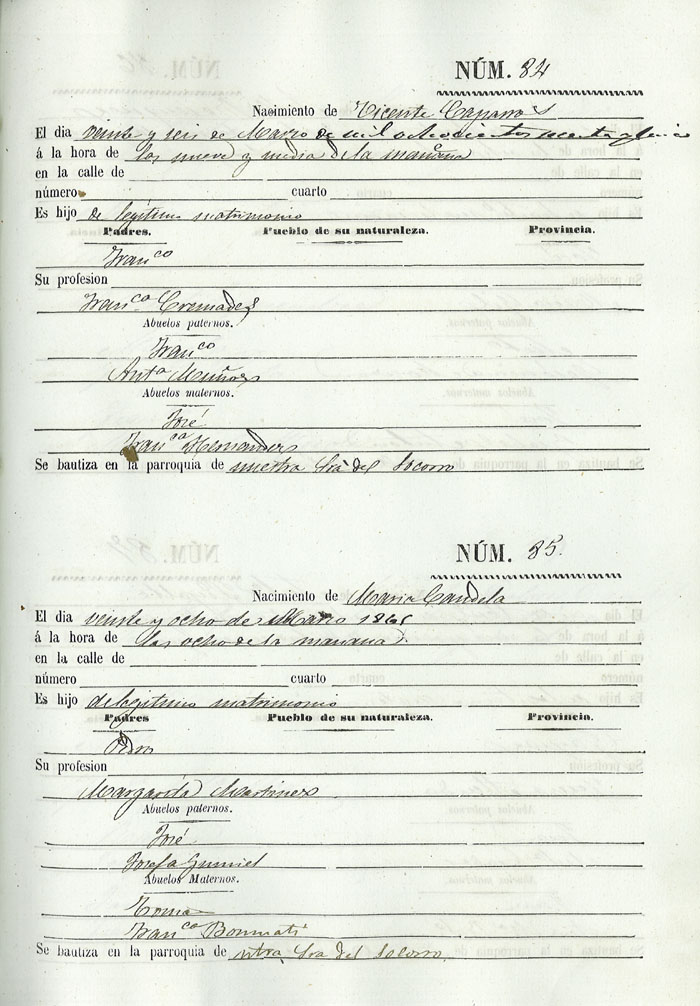 NÚM. 84
Nacimiento de Vicente Caparros
El dia veinte y seis de Marzo de mil ochocientos sesenta y
á la hora de las nueve y media de la mañana
en la calle de
número cuarto
Es hijo de legitimo matrimonio
Padres. Pueblo de su naturaleza. Provincia.
Franco
Su profesion
Franca Cremades
Abuelos paternos.
Franco
Anta Muñoz
Abuelos maternos.
José
Franca Hernandez
Se bautiza en la parroquia de nuestra Sra del Socorro
NÚM. 85.
Nacimiento de Maria Candela
El dia veinte y ocho de Marzo
á la hora de las ocho de la mañana
en la calle de
número cuarto
Es hijo de legitimo matrimonio
Padres Pueblo de su naturaleza. Provincia.
Pedro
Su profesion
Margarita Martinez
Abuelos paternos.
José
Josefa
Abuelos Maternos.
Tomas
Franca Bonmati
Se bautiza en la parroquia de ntra Sra del Socorro.